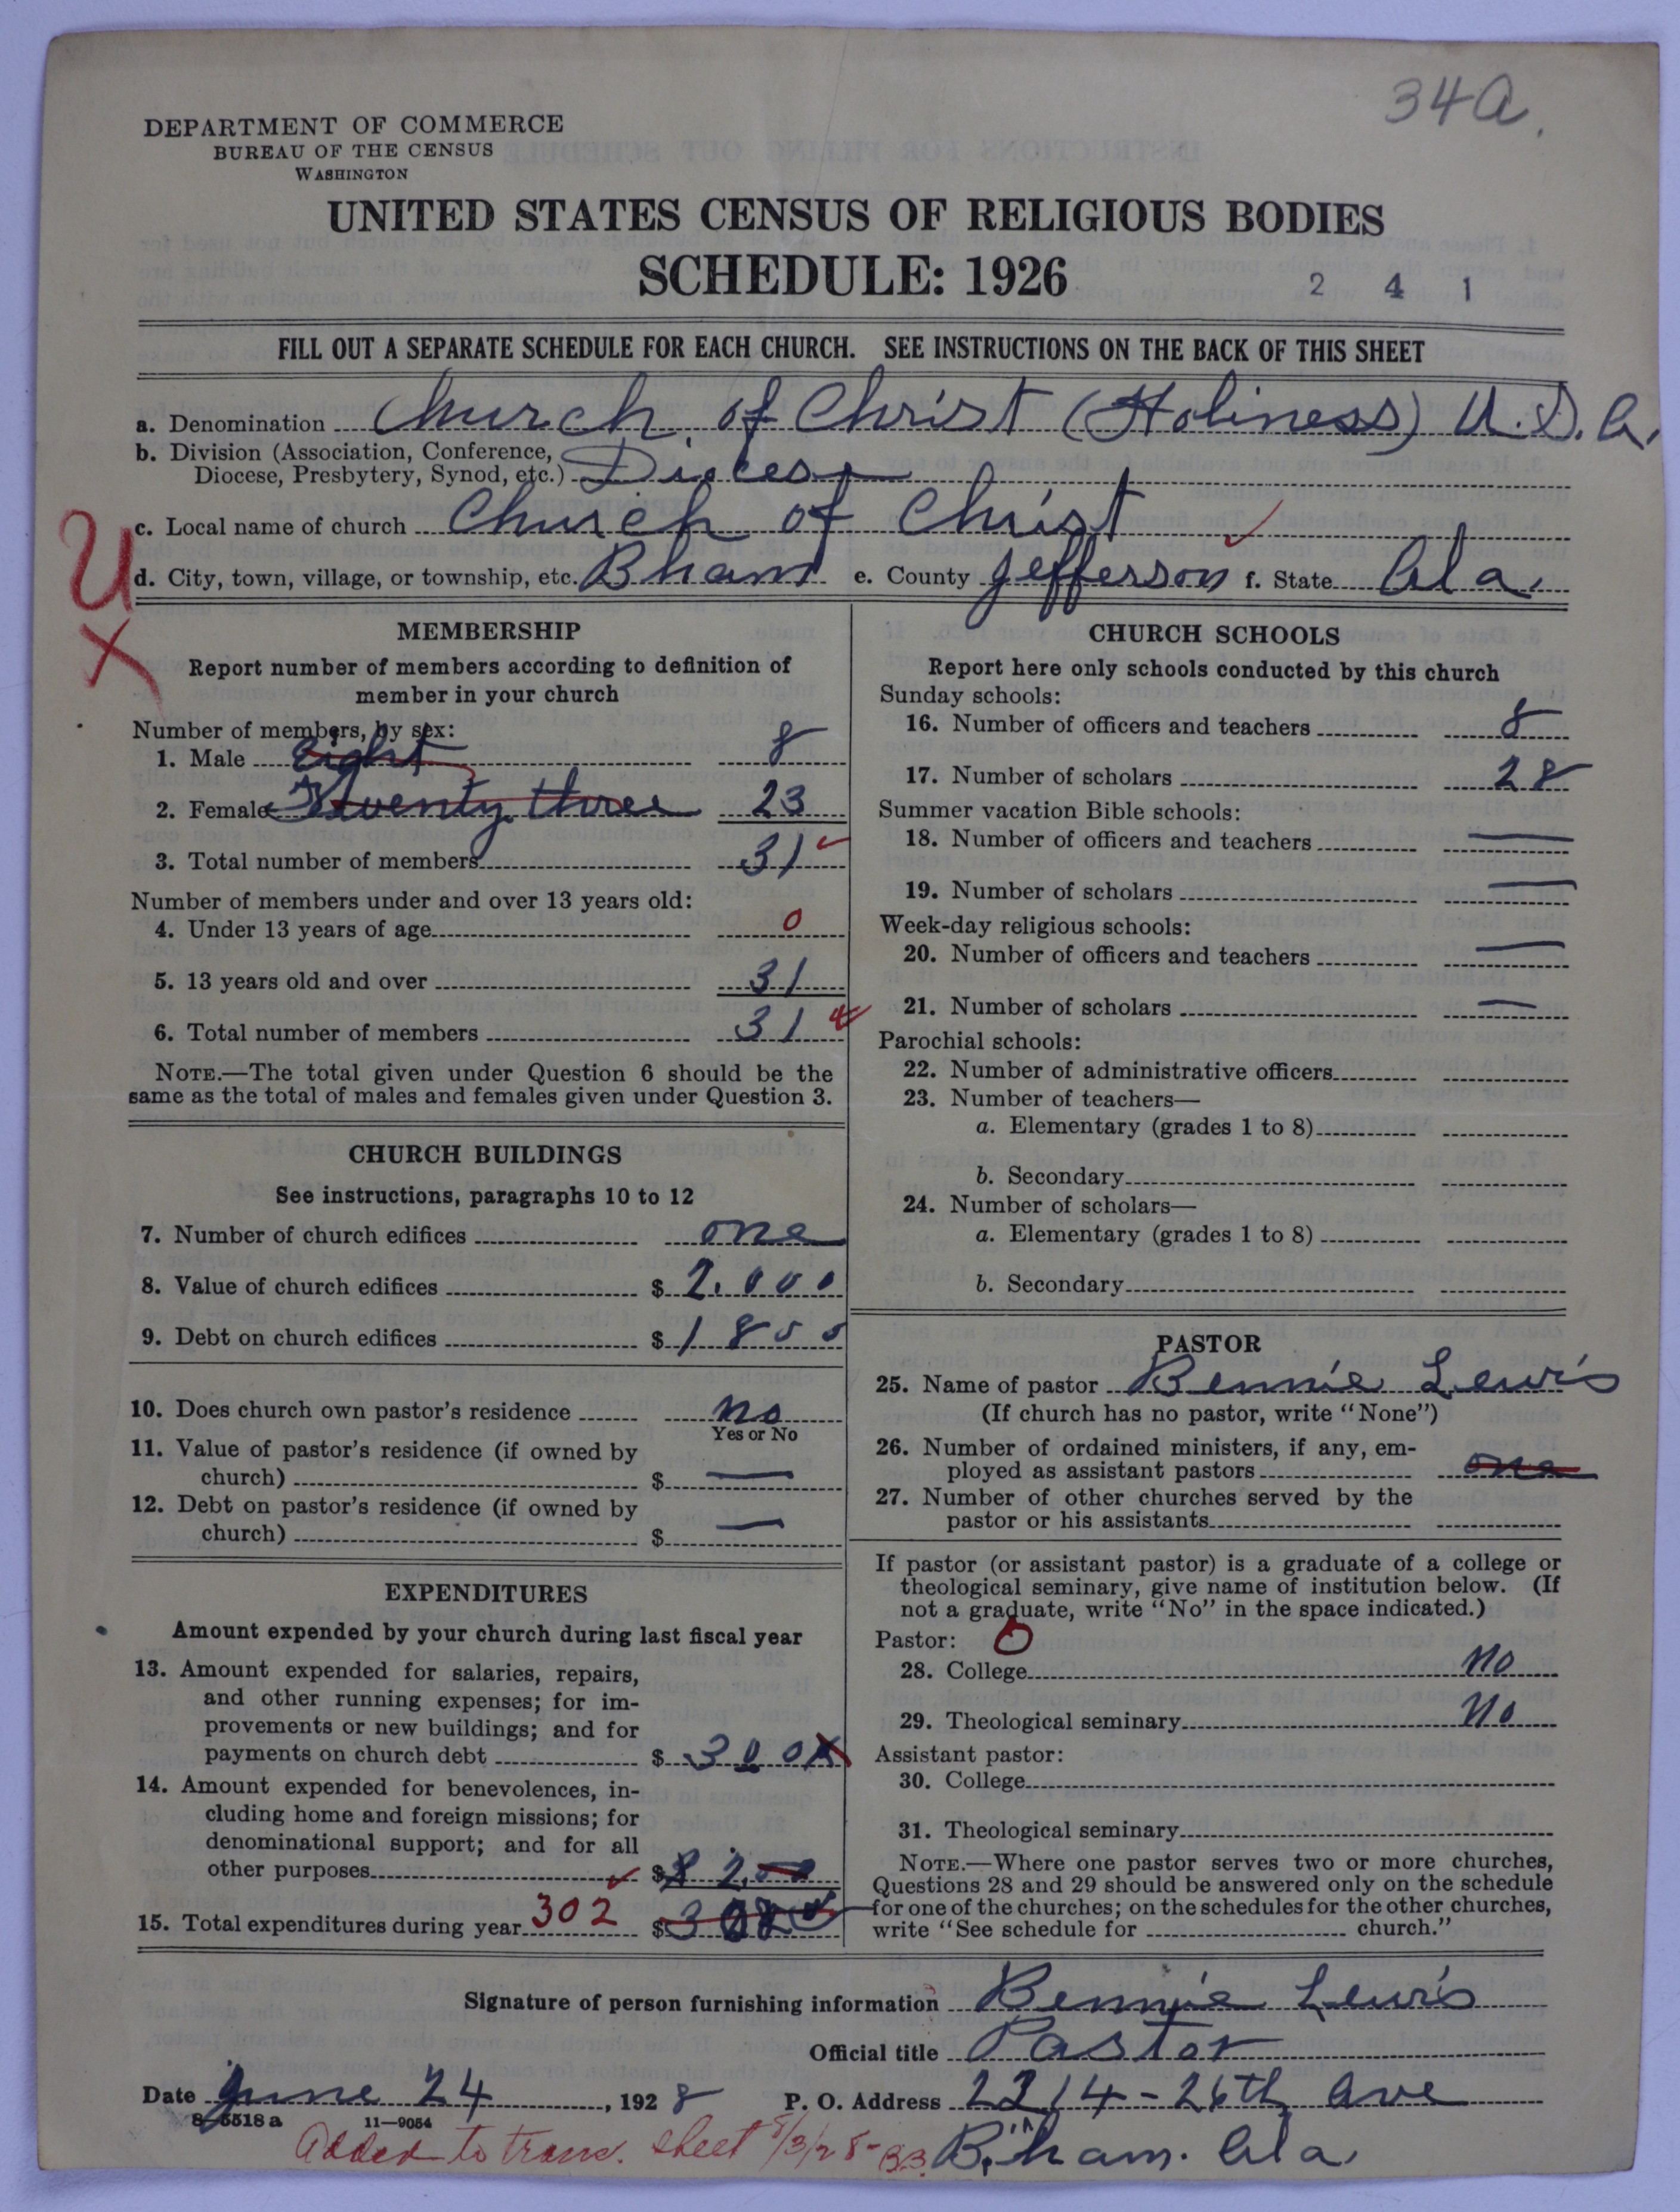 34a.
DEPARTMENT OF COMMERCE
BUREAU OF THE CENSUS
WASHINGTON
UNITED STATES CENSUS OF RELIGIOUS BODIES
SCHEDULE: 1926
2 4 1
FILL OUT A SEPARATE SCHEDULE FOR EACH CHURCH. SEE INSTRUCTIONS ON THE BACK OF THIS SHEET
a. Denomination Church of Christ (Holiness) U.S.A.
b. Division (Association, Conference,
Diocese, Presbytery, Synod, etc.) Diocese
c. Local name of church Church of Christ
d. City, town, village, or township, etc. Bham e. County Jefferson f. State Ala.
U
X
MEMBERSHIP
Report number of members according to definition of
member in your church
Number of members, by sex:
1. Male eight 8
2. Female Twenty three 23
3. Total number of members 31
Number of members under and over 13 years old:
4. Under 13 years of age 0
5. 13 years old and over 31
6. Total number of members 31
NOTE.—The total given under Question 6 should be the
same as the total of males and females given under Question 3.
CHURCH BUILDINGS
See instructions, paragraphs 10 to 12
7. Number of church edifices one
8. Value of church edifices $ 2.000
9. Debt on church edifices $ 1800
10. Does church own pastor's residence no
Yes or No
11. Value of pastor's residence (if owned by
church) $ —
12. Debt on pastor's residence (if owned by
church) $ —
EXPENDITURES
Amount expended by your church during last fiscal year
13. Amount expended for salaries, repairs,
and other running expenses; for im-
provements or new buildings; and for
payments on church debt $ 300
14. Amount expended for benevolences, in-
cluding home and foreign missions; for
denominational support; and for all
other purposes $ 2.00
15. Total expenditures during year 302 $
CHURCH SCHOOLS
Report here only schools conducted by this church
Sunday schools:
16. Number of officers and teachers 8
17. Number of scholars 28
Summer vacation Bible schools:
18. Number of officers and teachers —
19. Number of scholars —
Week-day religious schools:
20. Number of officers and teachers —
21. Number of scholars —
Parochial schools:
22. Number of administrative officers
23. Number of teachers—
a. Elementary (grades 1 to 8)
b. Secondary
24. Number of scholars—
a. Elementary (grades 1 to 8)
b. Secondary
PASTOR
25. Name of pastor Bennie Lewis
(If church has no pastor, write "None")
26. Number of ordained ministers, if any, em-
ployed as assistant pastors one
27. Number of other churches served by the
pastor or his assistants
If pastor (or assistant pastor) is a graduate of a college or
theological seminary, give name of institution below. (If
not a graduate, write "No" in the space indicated.)
Pastor: 0
28. College no
29. Theological seminary No
Assistant pastor:
30. College
31. Theological seminary
NOTE.—Where one pastor serves two or more churches,
Questions 28 and 29 should be answered only on the schedule
for one of the churches; on the schedules for the other churches,
write "See schedule for church."
Signature of person furnishing information Bennie Lewis
Official title Pastor
Date June 24, 1928 P. O. Address 2214-26th Ave
8-5518a 11—9054
Added to trans. sheet 8/3/28- BB. B'ham. Ala.